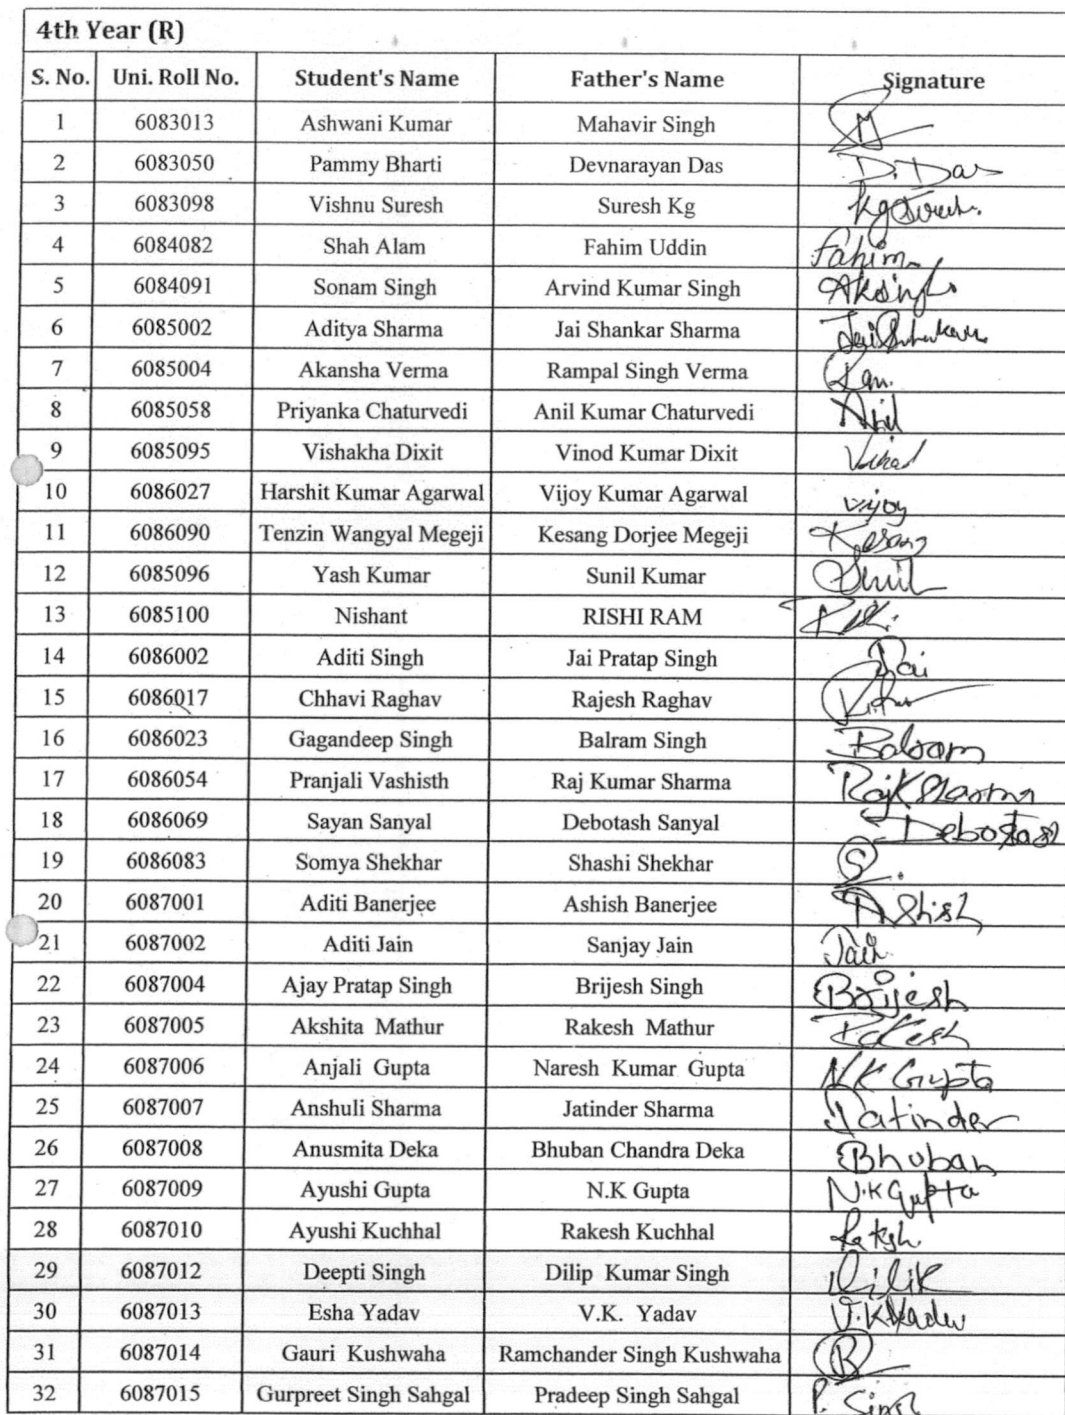 4th Year (R)
S. No. Uni. Roll No. Student's Name Father's Name Signature
1 6083013 Ashwani Kumar Mahavir Singh
2 6083050 Pammy Bharti Devnarayan Das D. Das
3 6083098 Vishnu Suresh Suresh Kg Kg Suresh.
4 6084082 Shah Alam Fahim Uddin Fahim
5 6084091 Sonam Singh Arvind Kumar Singh AkSingh
6 6085002 Aditya Sharma Jai Shankar Sharma
7 6085004 Akansha Verma Rampal Singh Verma Ram.
8 6085058 Priyanka Chaturvedi Anil Kumar Chaturvedi Anil
9 6085095 Vishakha Dixit Vinod Kumar Dixit
10 6086027 Harshit Kumar Agarwal Vijoy Kumar Agarwal vijoy
11 6086090 Tenzin Wangyal Megeji Kesang Dorjee Megeji Kesang
12 6085096 Yash Kumar Sunil Kumar Sunil
13 6085100 Nishant RISHI RAM
14 6086002 Aditi Singh Jai Pratap Singh Jai
15 6086017 Chhavi Raghav Rajesh Raghav
16 6086023 Gagandeep Singh Balram Singh Balram
17 6086054 Pranjali Vashisth Raj Kumar Sharma RajKSharma
18 6086069 Sayan Sanyal Debotash Sanyal Debotash
19 6086083 Somya Shekhar Shashi Shekhar S.
20 6087001 Aditi Banerjee Ashish Banerjee Ashish
21 6087002 Aditi Jain Sanjay Jain Jain
22 6087004 Ajay Pratap Singh Brijesh Singh Brijesh
23 6087005 Akshita Mathur Rakesh Mathur Rakesh
24 6087006 Anjali Gupta Naresh Kumar Gupta N K Gupta
25 6087007 Anshuli Sharma Jatinder Sharma Jatinder
26 6087008 Anusmita Deka Bhuban Chandra Deka Bhuban
27 6087009 Ayushi Gupta N.K Gupta N.K Gupta
28 6087010 Ayushi Kuchhal Rakesh Kuchhal
29 6087012 Deepti Singh Dilip Kumar Singh
30 6087013 Esha Yadav V.K. Yadav V.KYadav
31 6087014 Gauri Kushwaha Ramchander Singh Kushwaha R
32 6087015 Gurpreet Singh Sahgal Pradeep Singh Sahgal P. Singh